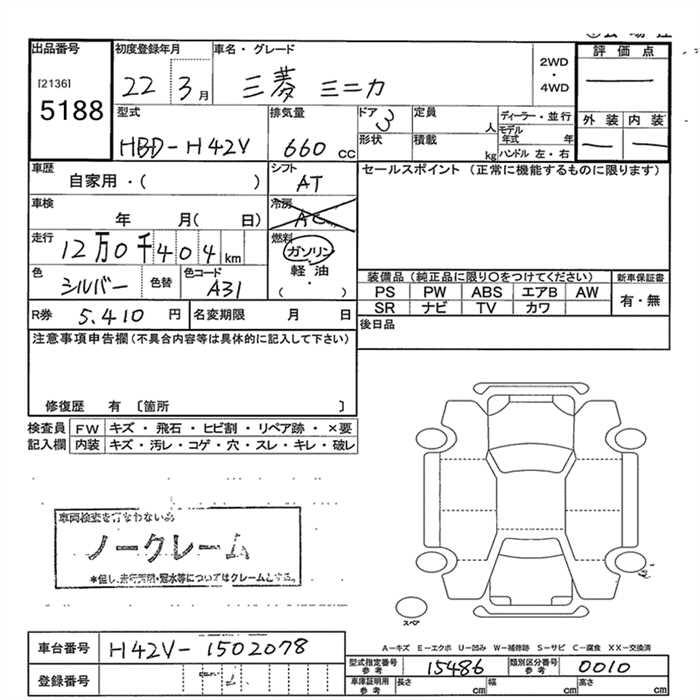 出品番号
[2136]
5188
初度登録年月
22 3月
車名・グレード
三菱 ミニカ
2WD
・
4WD
評価点
—
外装 内装
— —
型式
HBD-H42V
排気量
660 cc
ドア 3
形状
定員 人
積載 kg
ディーラー・並行
モデル年式 年
ハンドル 左・右
車歴
自家用・( )
シフト
AT
セールスポイント (正常に機能するものに限ります)
車検
年 月( 日)
冷房
AC
走行
12万0千404km
燃料
ガソリン
軽油
・
( )
色
シルバー
色替
色コード
A31
装備品(純正品に限り○をつけてください)
PS PW ABS エアB AW
SR ナビ TV カワ
新車保証書
有・無
R券 5.410 円
名変期限 月 日
後日品
注意事項申告欄(不具合内容等は具体的に記入して下さい)
修復歴 有 〔箇所 〕
検査員記入欄
FW キズ・飛石・ヒビ割・リペア跡・×要
内装 キズ・汚レ・コゲ・穴・スレ・キレ・破レ
車両検査を行なわない為
ノークレーム
*但し、走行不明・冠水等についてはクレームとする。
スペア
車台番号
H42V-1502078
登録番号
A―キズ E―エクボ U―凹み W―補修跡 S―サビ C―腐食 XX―交換済
型式指定番号
参考
15486
類別区分番号
参考
0010
車庫証明用
参考
長さ cm 幅 cm 高さ cm